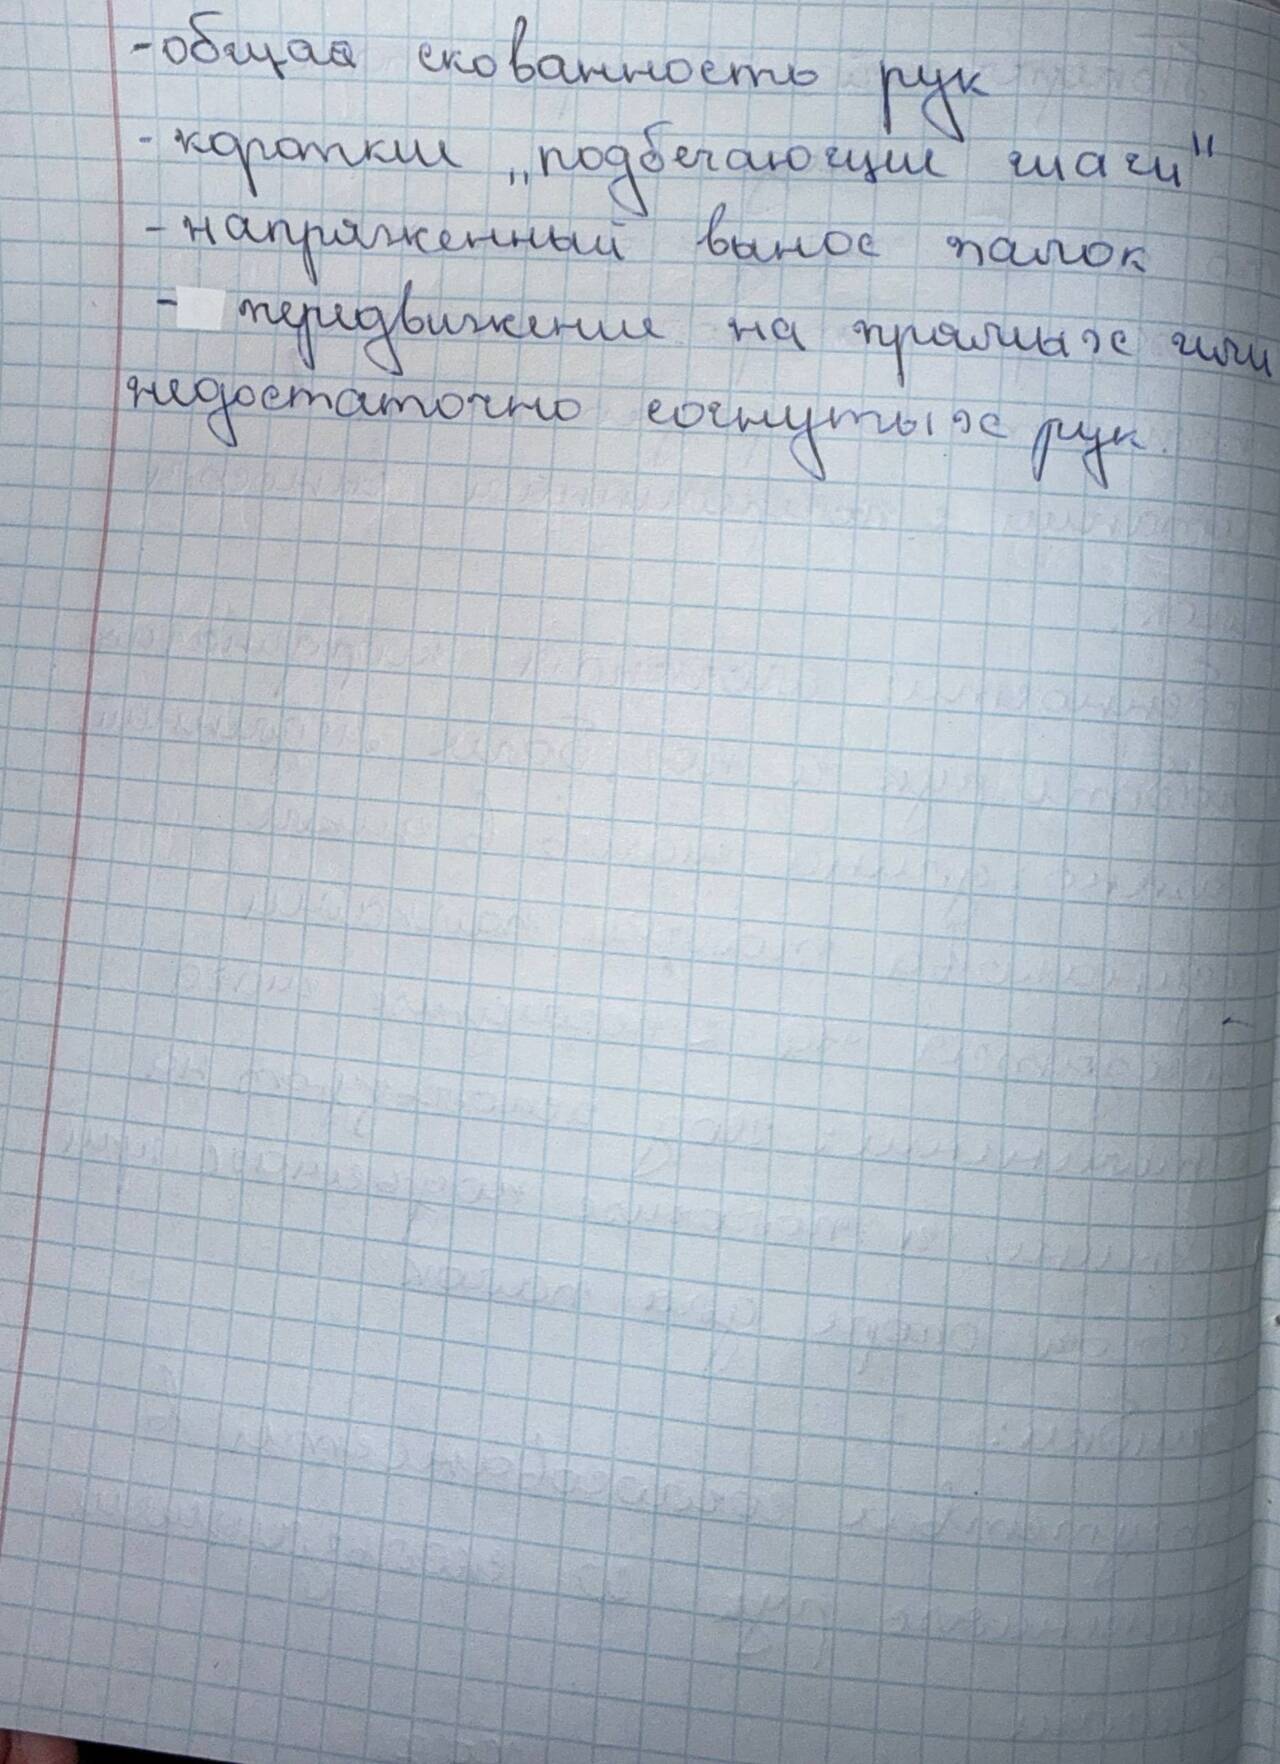 -общая скованность рук
- короткие „подбегающие шаги"
- напряженный вынос палок
- передвижение на прямых или
недостаточно согнутых рук.